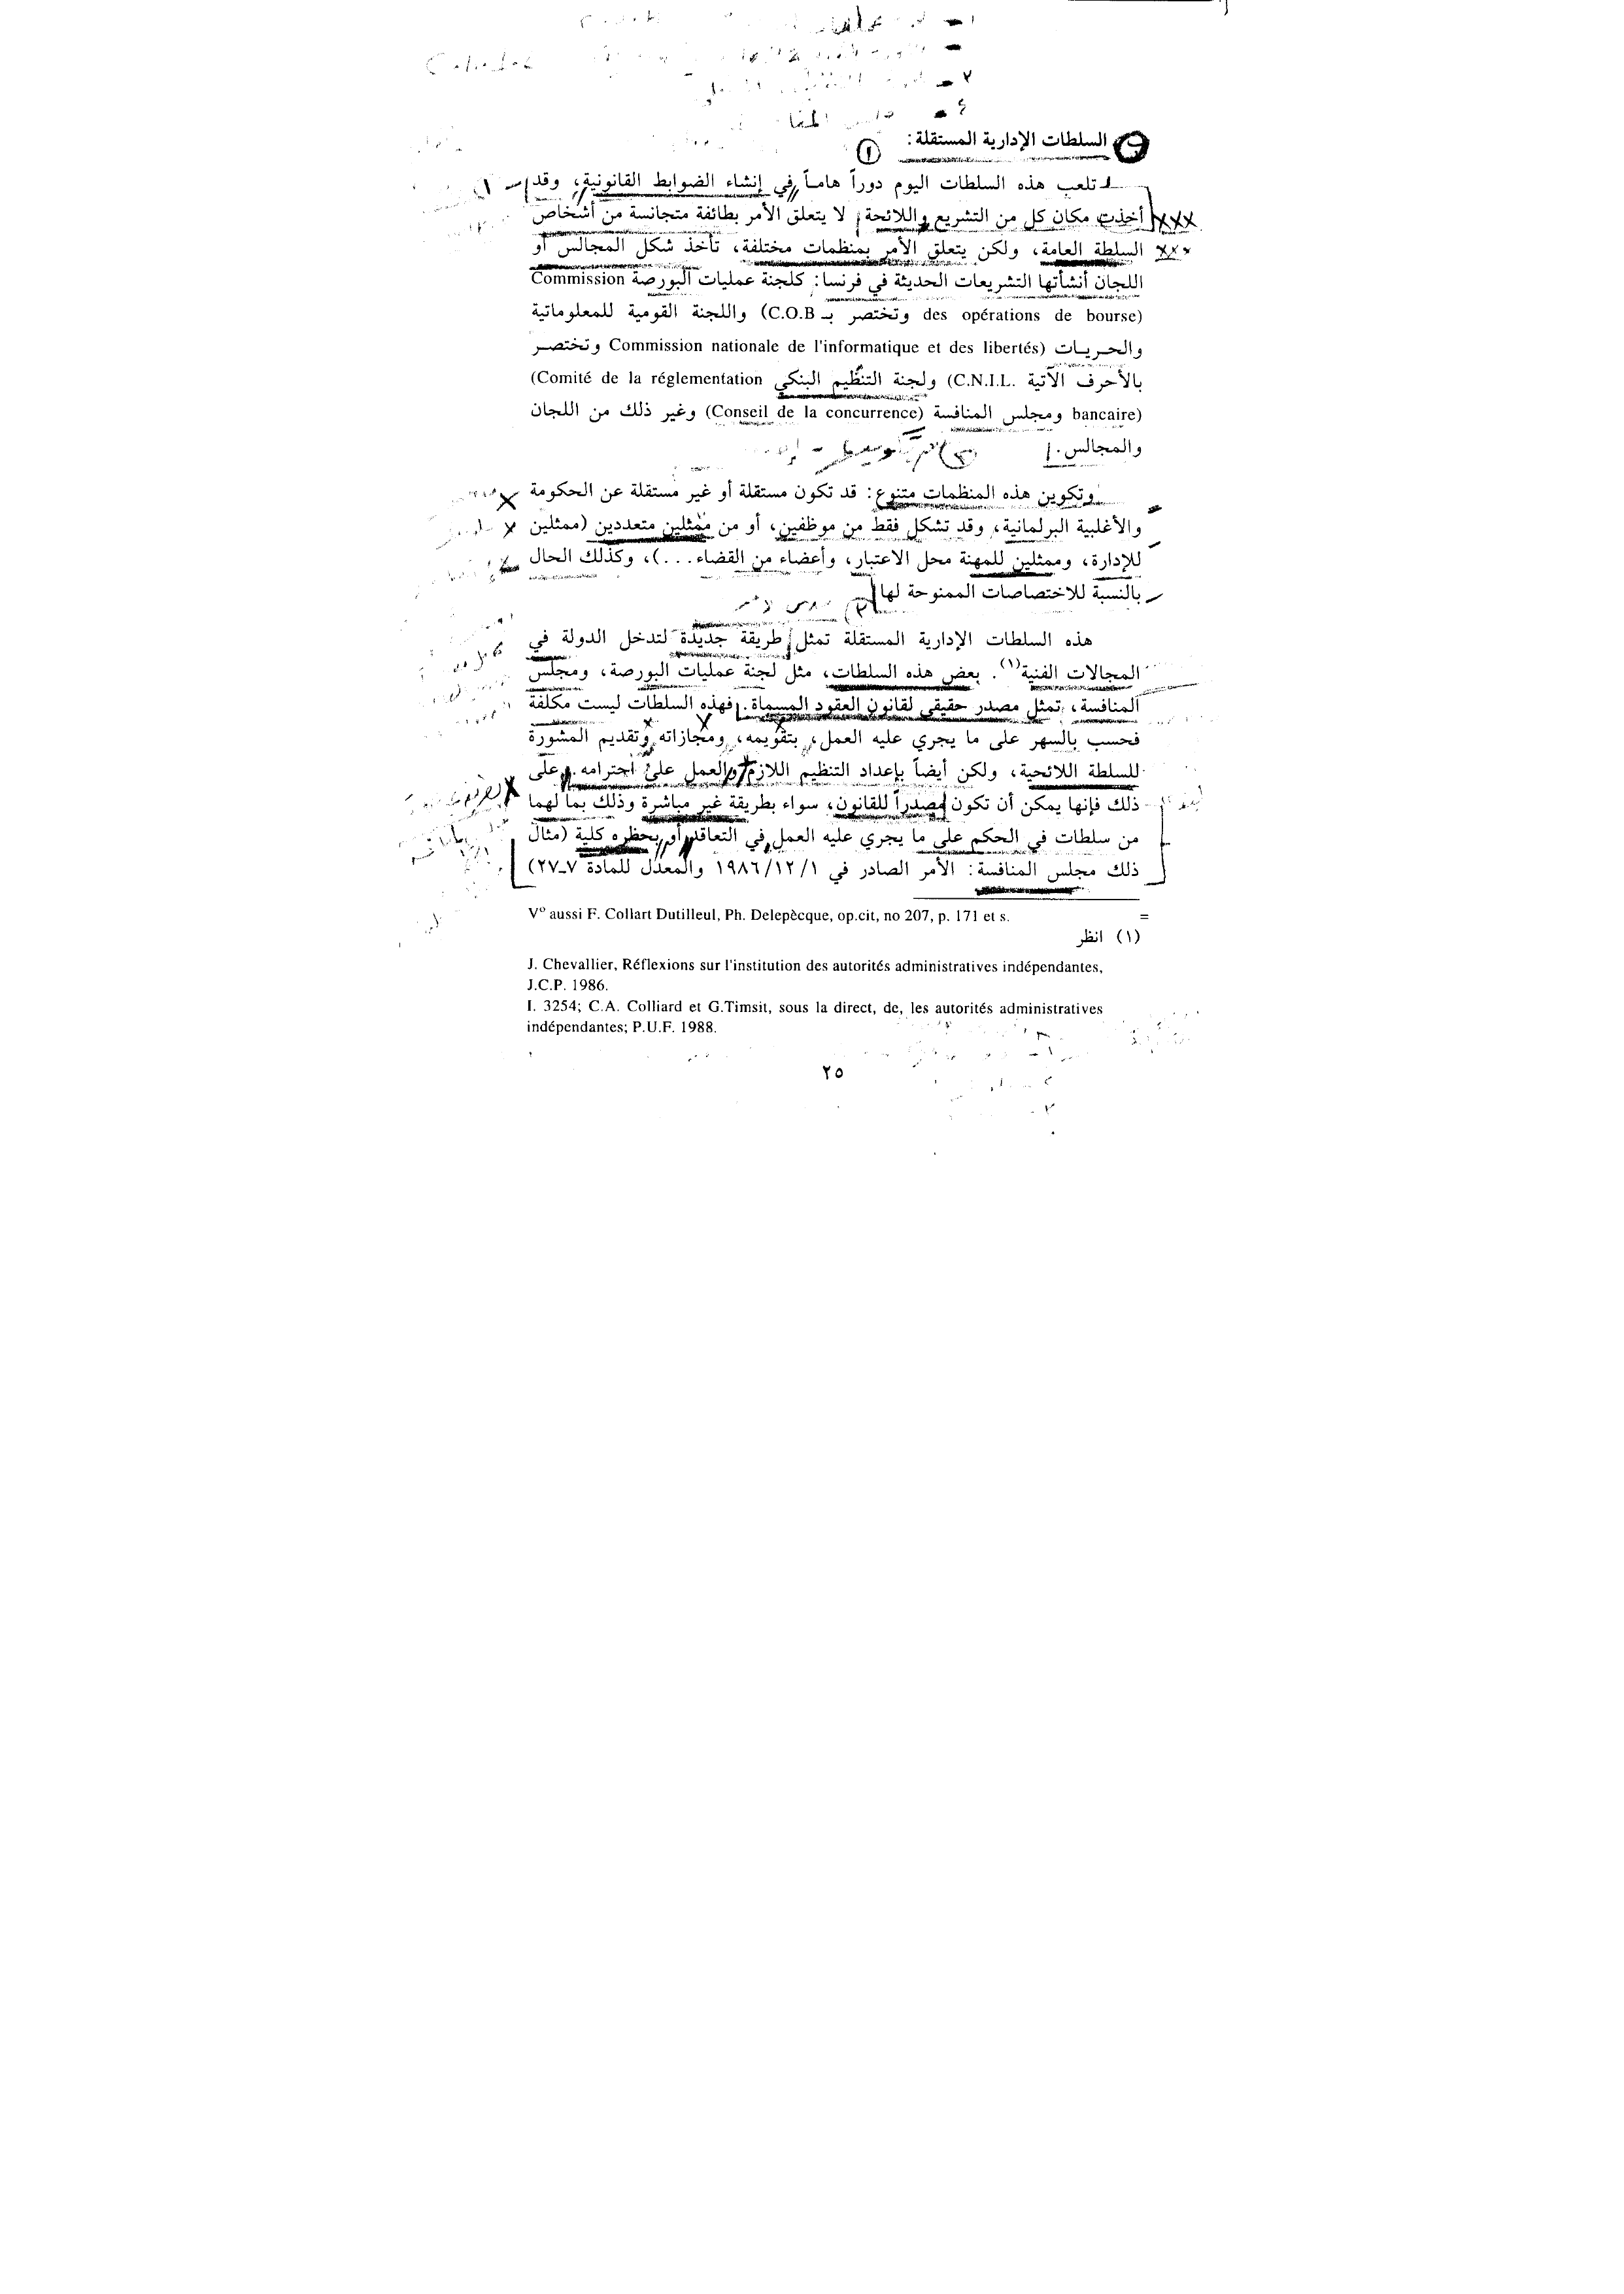 السلطات الإدارية المستقلة:
تلعب هذه السلطات اليوم دوراً هاماً في إنشاء الضوابط القانونية، وقد
أخذت مكان كل من التشريع واللائحة، لا يتعلق الأمر بطائفة متجانسة من أشخاص
السلطة العامة، ولكن يتعلق الأمر بمنظمات مختلفة، تأخذ شكل المجالس أو
اللجان أنشأتها التشريعات الحديثة في فرنسا: كلجنة عمليات البورصة Commission
des opérations de bourse) وتختصر بـ C.O.B) واللجنة القومية للمعلوماتية
والحريات (Commission nationale de l'informatique et des libertés وتختصر
بالأحرف الآتية C.N.I.L.) ولجنة التنظيم البنكي (Comité de la réglementation
bancaire) ومجلس المنافسة (Conseil de la concurrence) وغير ذلك من اللجان
والمجالس.
وتكوين هذه المنظمات متنوع: قد تكون مستقلة أو غير مستقلة عن الحكومة
والأغلبية البرلمانية، وقد تشكل فقط من موظفين، أو من ممثلين متعددين (ممثلين
للإدارة، وممثلين للمهنة محل الاعتبار، وأعضاء من القضاء...)، وكذلك الحال
بالنسبة للاختصاصات الممنوحة لها
هذه السلطات الإدارية المستقلة تمثل طريقة جديدة لتدخل الدولة في
المجالات الفنية(١). بعض هذه السلطات، مثل لجنة عمليات البورصة، ومجلس
المنافسة، تمثل مصدر حقيقي لقانون العقود المسماة. فهذه السلطات ليست مكلفة
فحسب بالسهر على ما يجري عليه العمل، بتقويمه، ومجازاته وتقديم المشورة
للسلطة اللائحية، ولكن أيضاً بإعداد التنظيم اللازم والعمل على احترامه. وعلى
ذلك فإنها يمكن أن تكون مصدراً للقانون، سواء بطريقة غير مباشرة وذلك بما لهما
من سلطات في الحكم على ما يجري عليه العمل في التعاقد أو بحظره كلية (مثال
ذلك مجلس المنافسة: الأمر الصادر في ١/١٢/١٩٨٦ والمعدل للمادة ٧ـ٢٧)
= V° aussi F. Collart Dutilleul, Ph. Delepècque, op.cit, no 207, p. 171 et s.
(١) انظر
J. Chevallier, Réflexions sur l'institution des autorités administratives indépendantes,
J.C.P. 1986.
I. 3254; C.A. Colliard et G.Timsit, sous la direct, de, les autorités administratives
indépendantes; P.U.F. 1988.
٢٥